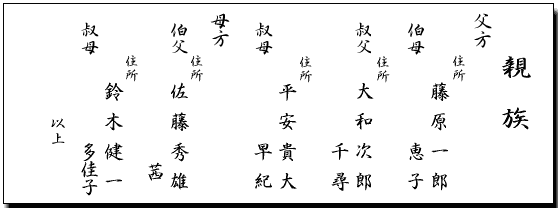 親族
父方
住所
藤原一郎
伯母
恵子
住所
大和次郎
叔父
千尋
住所
平安貴大
叔母
早紀
母方
住所
佐藤秀雄
伯父
茜
住所
鈴木健一
叔母
多佳子
以上